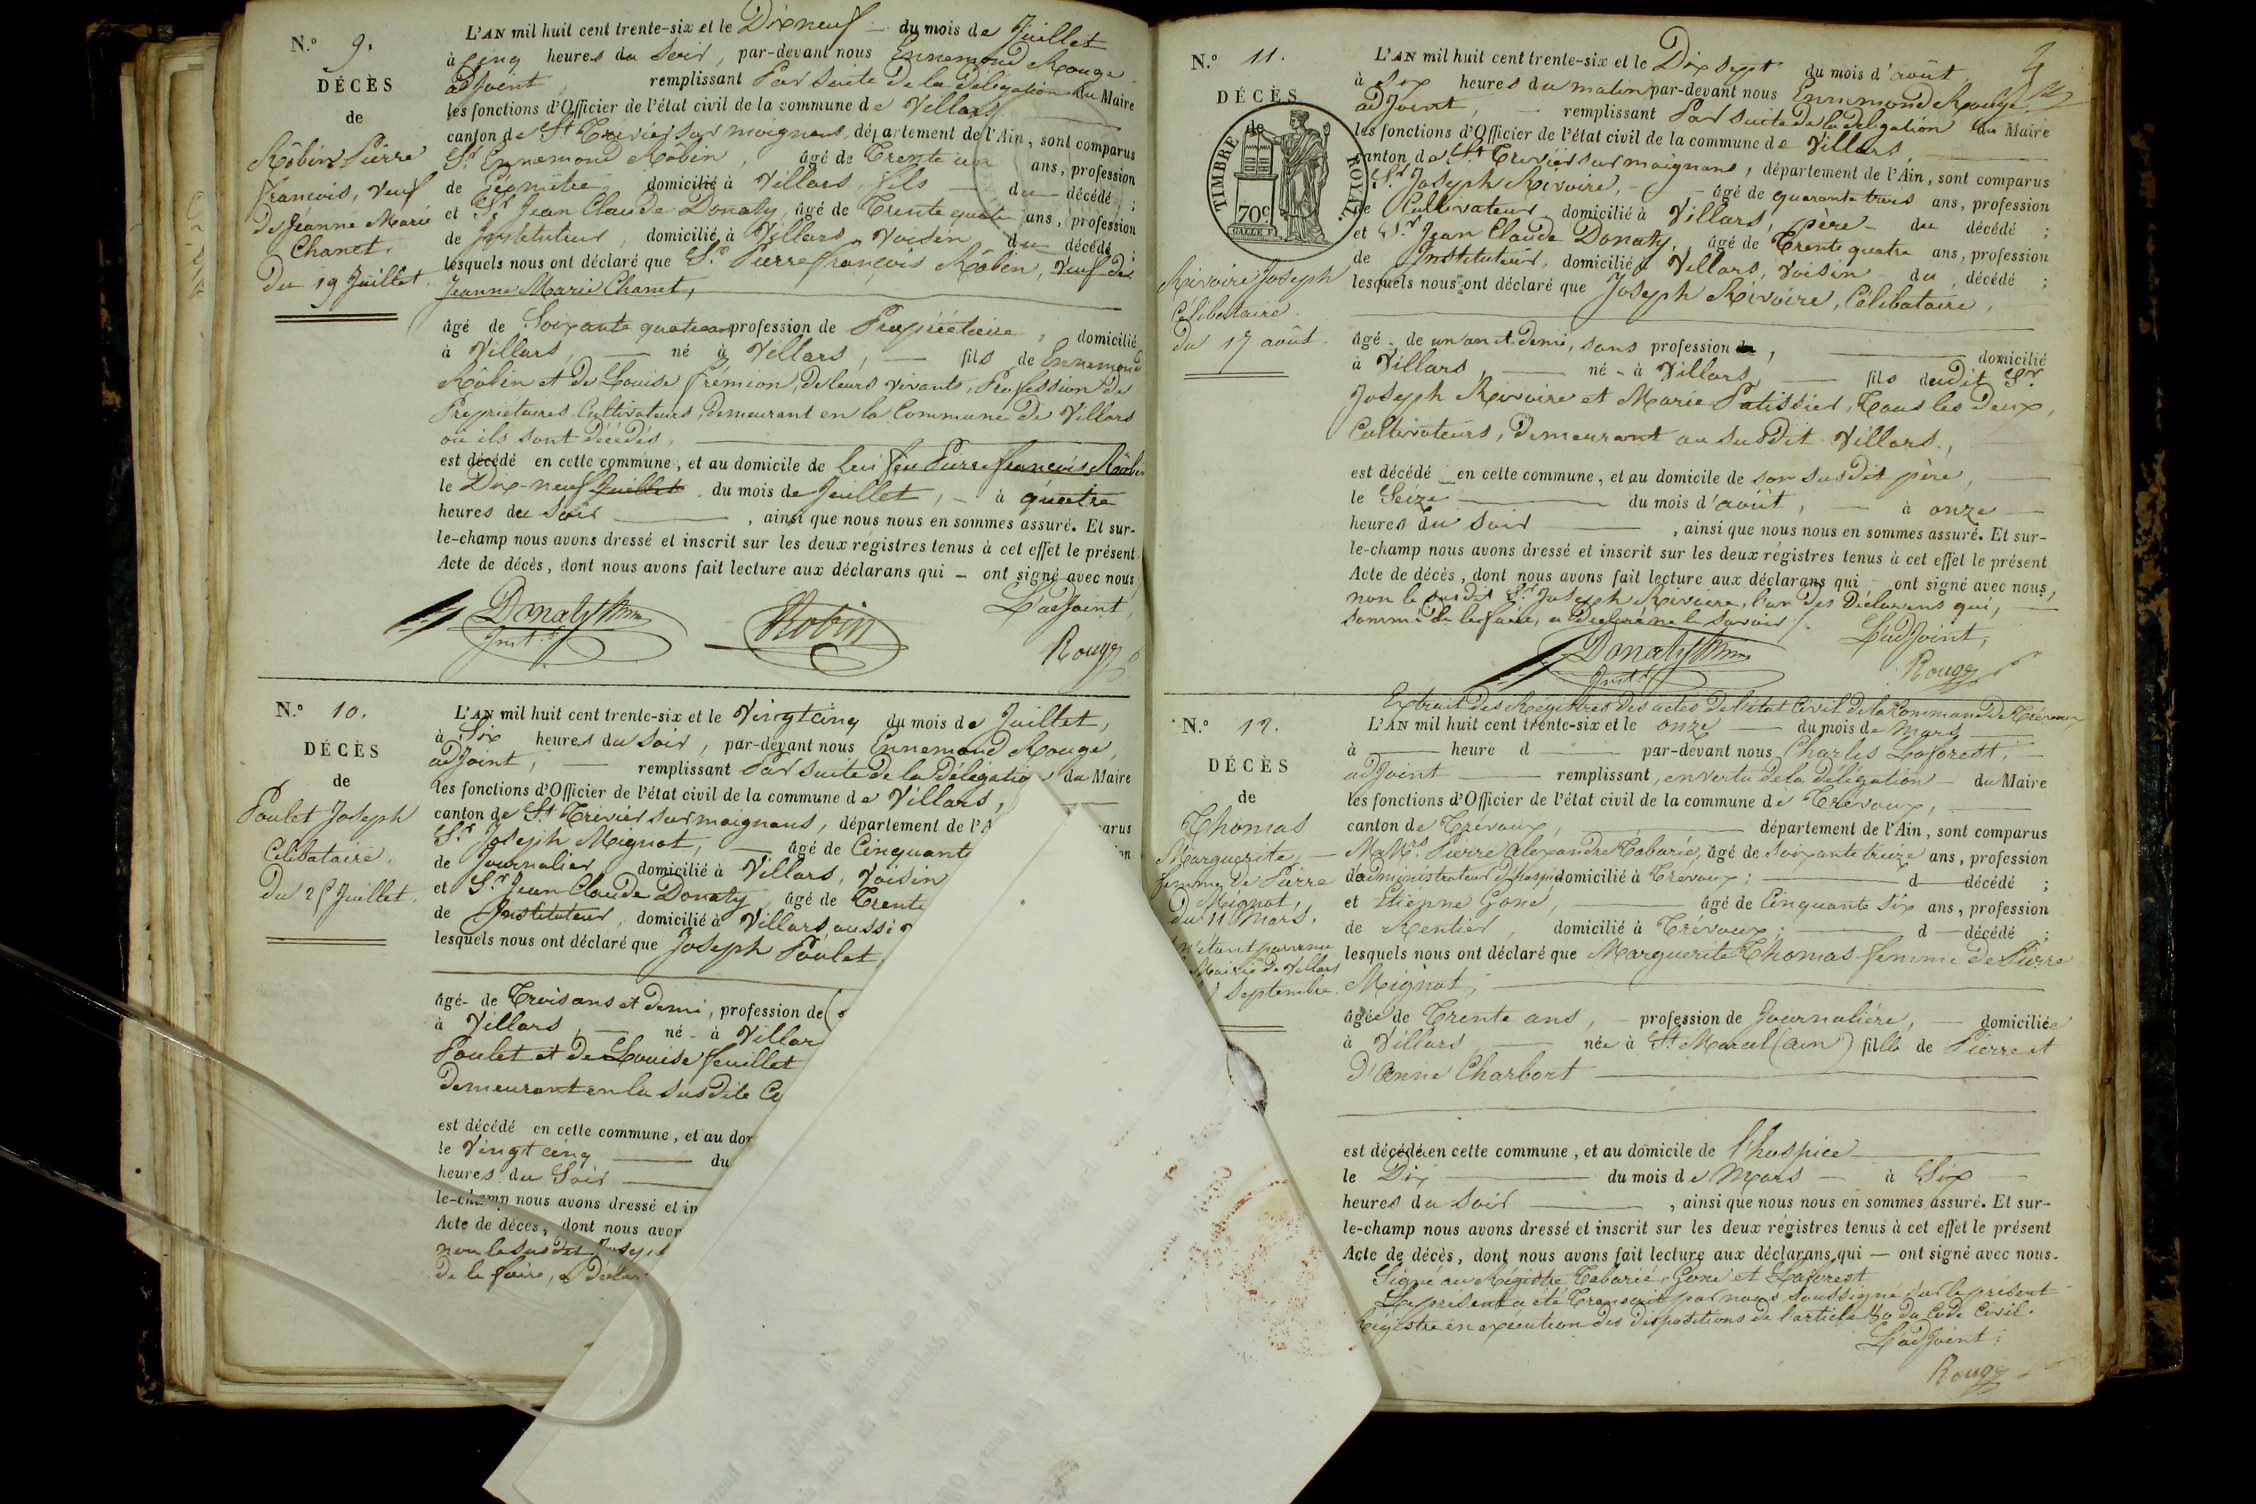 N.º 9.
DÉCÈS
de
Rôbin Pierre
francois, veuf
de Jeanne Marie
Chanet.
Du 19 Juillet.
L'AN mil huit cent trente-six et le Dix neuf du mois de Juillet
à Cinq heures du Soir, par-devant nous Ennemond Rouge
adjoint, remplissant Par suite de la délégation du Maire
les fonctions d'Officier de l'état civil de la commune de Villars,
canton de St Trivier sur moignans, département de l'Ain, sont comparus
Sr Ennemond Rôbin, âgé de Trente un ans, profession
de Géomètre, domicilié à Villars, fils du décédé ;
et Sr Jean Claude Donaty, âgé de Trente quatre ans, profession
de Instituteur, domicilié à Villars, Voisin du décédé ;
lesquels nous ont déclaré que Sr Pierre françois Rôbin, veuf de
Jeanne Marie Chanet,
âgé de Soixante quatre ans profession de Propriétaire, domicilié
à Villars, né à Villars, fils de Ennemond
Rôbin et de Louise Frémion, de leurs vivants, Profession de
Propriétaires Cultivateurs, demeurant en la Commune de Villars
où ils sont décédés,
est décédé en cette commune, et au domicile de lui feu Pierre françois Rôbin
le Dix-neuf Juillet du mois de Juillet, à quatre
heures du soir, ainsi que nous nous en sommes assuré. Et sur-
le-champ nous avons dressé et inscrit sur les deux régistres tenus à cet effet le présent
Acte de décès, dont nous avons fait lecture aux déclarans qui – ont signé avec nous
L'adjoint,
Donaty
Inst.r
Robin
Rouge
N.º 10.
DÉCÈS
de
Poulet Joseph
Célibataire.
Du 25 Juillet.
L'AN mil huit cent trente-six et le Vingt cinq du mois de Juillet,
à Six heures du Soir, par-devant nous Ennemond Rouge,
adjoint, remplissant Par suite de la Délégation du Maire
les fonctions d'Officier de l'état civil de la commune de Villars,
canton de St Trivier sur moignans, département de l'A
Sr Joseph Mignot, âgé de Cinquant
de Journalier, domicilié à Villars, Voisin
et Sr Jean Claude Donaty, âgé de Trente
de Instituteur, domicilié à Villars, aussi
lesquels nous ont déclaré que Joseph Poulet,
âgé de Trois ans et demi, profession de
à Villars, né à Villar
Poulet et de Louise feuillet
demeurant en la susdite Co
est décédé en cette commune, et au dom
le Vingt cinq du
heures du Soir
le-champ nous avons dressé et in
Acte de décès, dont nous avon
non le susdit Joseph
de le faire, a déclar
N.º 11.
DÉCÈS
de
TIMBRE ROYAL.
70c
Rivoire Joseph
Célibataire.
du 17 août.
L'AN mil huit cent trente-six et le Dix sept du mois d'août
à Six heures du matin par-devant nous Ennemond Rouge
adjoint, remplissant Par suite de la délégation du Maire
les fonctions d'Officier de l'état civil de la commune de Villars,
canton de St Trivier sur moignans, département de l'Ain, sont comparus
Sr Joseph Rivoire, âgé de quarante trois ans, profession
de Cultivateur, domicilié à Villars, père du décédé ;
et Sr Jean Claude Donaty, âgé de Trente quatre ans, profession
de Instituteur, domicilié à Villars, voisin du décédé ;
lesquels nous ont déclaré que Joseph Rivoire, Célibataire,
âgé de un an et demi, sans profession, domicilié
à Villars, né à Villars, fils dudit Sr
Joseph Rivoire et Marie Patissier, tous les deux,
Cultivateurs, demeurant au susdit Villars,
est décédé en cette commune, et au domicile de son susdit père,
le Seize du mois d'août, à onze
heures du soir, ainsi que nous nous en sommes assuré. Et sur-
le-champ nous avons dressé et inscrit sur les deux régistres tenus à cet effet le présent
Acte de décès, dont nous avons fait lecture aux déclarans qui ont signé avec nous,
non le susdit Sr Joseph Rivoire, l'un des déclarans qui,
sommé de le faire, a déclaré ne le savoir.
L'adjoint,
Donaty
Inst.r
Rouge
N.º 12.
DÉCÈS
de
Thomas
Marguerite,
femme de Pierre
Mignot,
du 11 Mars.
n'étant parvenu
Mairie de Villars
Septembre.
Extrait des Régistres des actes de l'état Civil de la Commune de Trévoux,
L'AN mil huit cent trente-six et le onze du mois de Mars
à heure d par-devant nous Charles Laforest,
adjoint remplissant, en vertu de la délégation du Maire
les fonctions d'Officier de l'état civil de la commune de Trévoux,
canton de Trévoux, département de l'Ain, sont comparus
M.Mrs Pierre Alexandre Tabarié, âgé de soixante treize ans, profession
d'administrateur d'hospice domicilié à Trévoux ; d décédé ;
et Etienne Goné, âgé de Cinquante Six ans, profession
de Rentier, domicilié à Trévoux ; d décédé ;
lesquels nous ont déclaré que Marguerite Thomas femme de Pierre
Mignot,
âgée de Trente ans, profession de Journalière, domiciliée
à Villars née à St Marcel (ain) fille de Pierre et
d'Anne Charbort
est décédée en cette commune, et au domicile de l'hospice
le Dix du mois de Mars à Six
heures du soir, ainsi que nous nous en sommes assuré. Et sur-
le-champ nous avons dressé et inscrit sur les deux régistres tenus à cet effet le présent
Acte de décès, dont nous avons fait lecture aux déclarans qui – ont signé avec nous.
Signé au Régistre Tabarié, Goné et Laforest
Le présent a été Transcrit par nous soussigné sur le présent
Régistre en exécution des dispositions de l'article 80 du Code Civil.
L'adjoint,
Rouge